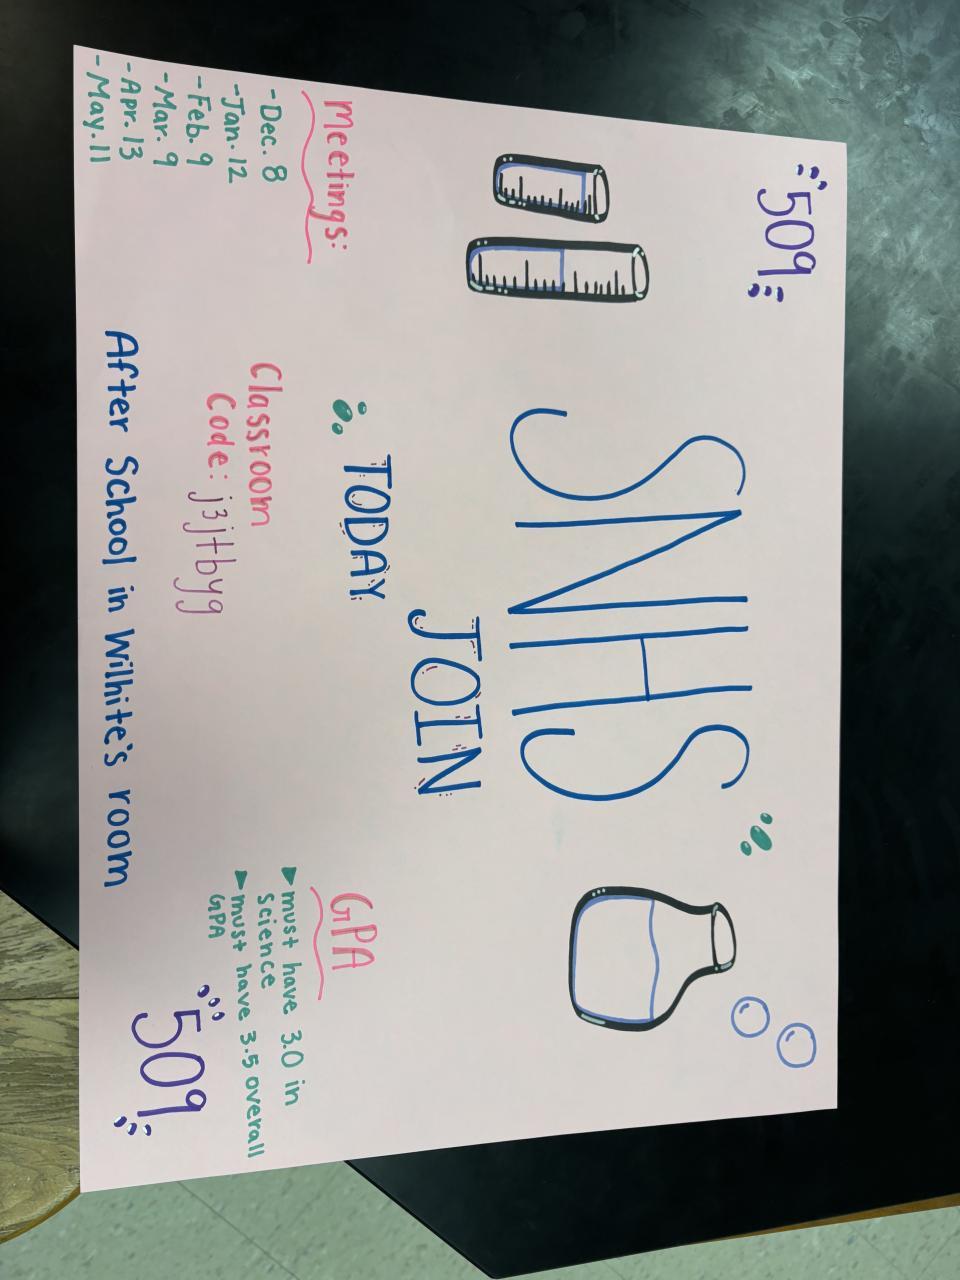 509
SNHS
JOIN
TODAY
Meetings:
- Dec. 8
- Jan. 12
- Feb. 9
- Mar. 9
- Apr. 13
- May. 11
Classroom
Code: j3jtbyg
GPA
▶ must have 3.0 in
Science
▶ must have 3.5 overall
GPA
509
After School in Wilhite's room